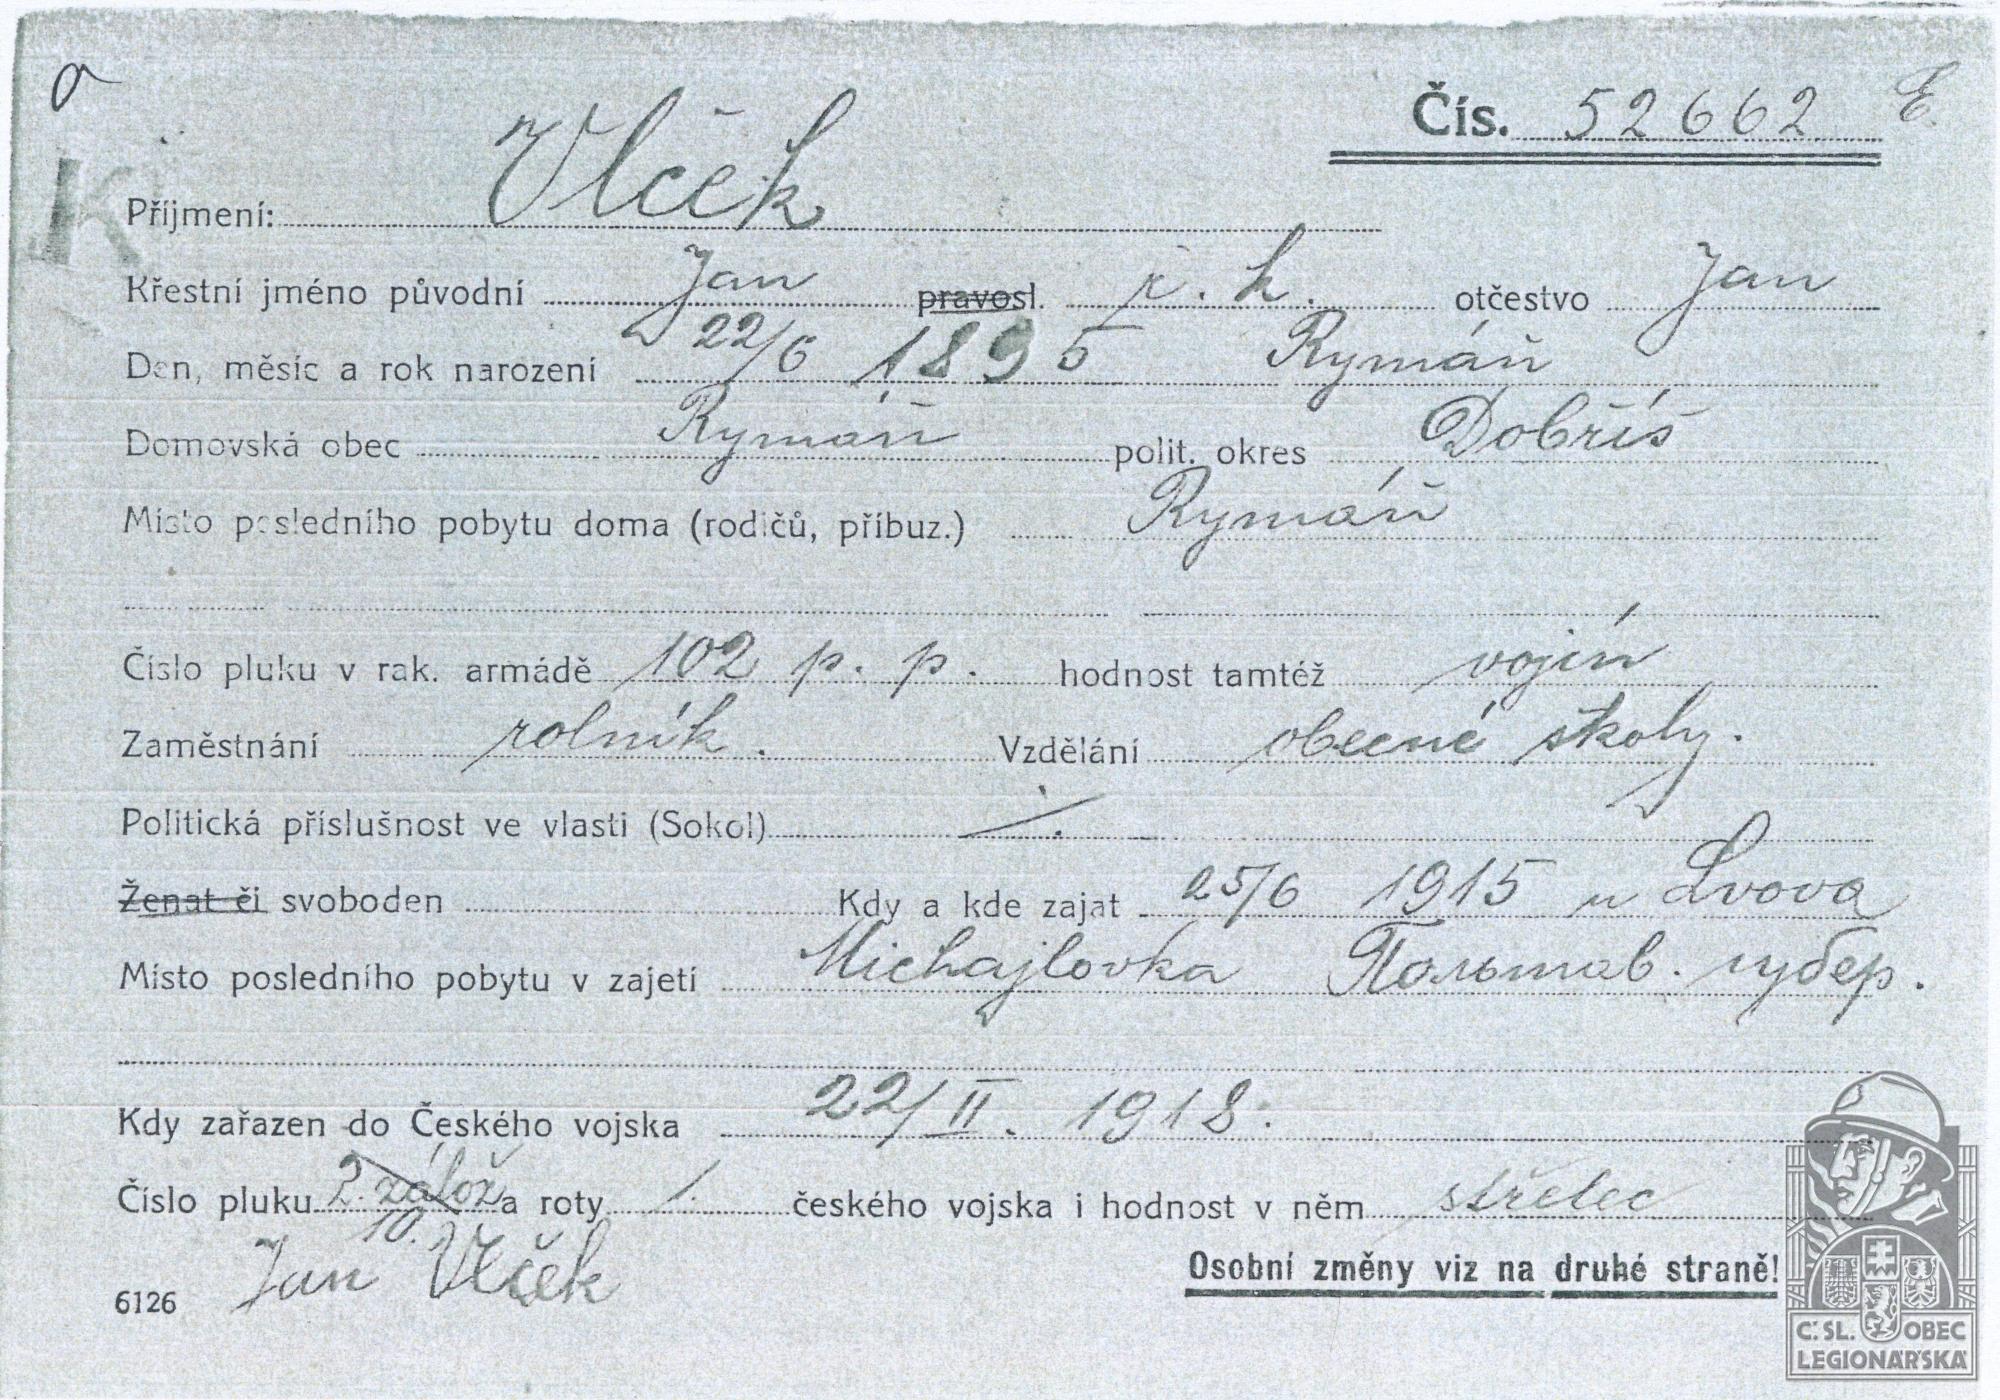 Čís. 52662 E.
K
Příjmení: Vlček
Křestní jméno původní Jan pravosl. ř. k. otčestvo Jan
Den, měsíc a rok narození 22/6 1895 Rymáň
Domovská obec Rymáň polit. okres Dobříš
Místo posledního pobytu doma (rodičů, příbuz.) Rymáň
Číslo pluku v rak. armádě 102 p. p. hodnost tamtéž vojín
Zaměstnání rolník. Vzdělání obecné školy.
Politická příslušnost ve vlasti (Sokol)
Ženat či svoboden Kdy a kde zajat 25/6 1915 u Lvova
Místo posledního pobytu v zajetí Michajlovka Польтав. губер.
Kdy zařazen do Českého vojska 22/II. 1918.
Číslo pluku 2. zálož a roty 1. českého vojska i hodnost v něm střelec
10.
Jan Vlček
Osobní změny viz na druhé straně!
6126
Č. SL. OBEC
LEGIONÁŘSKÁ